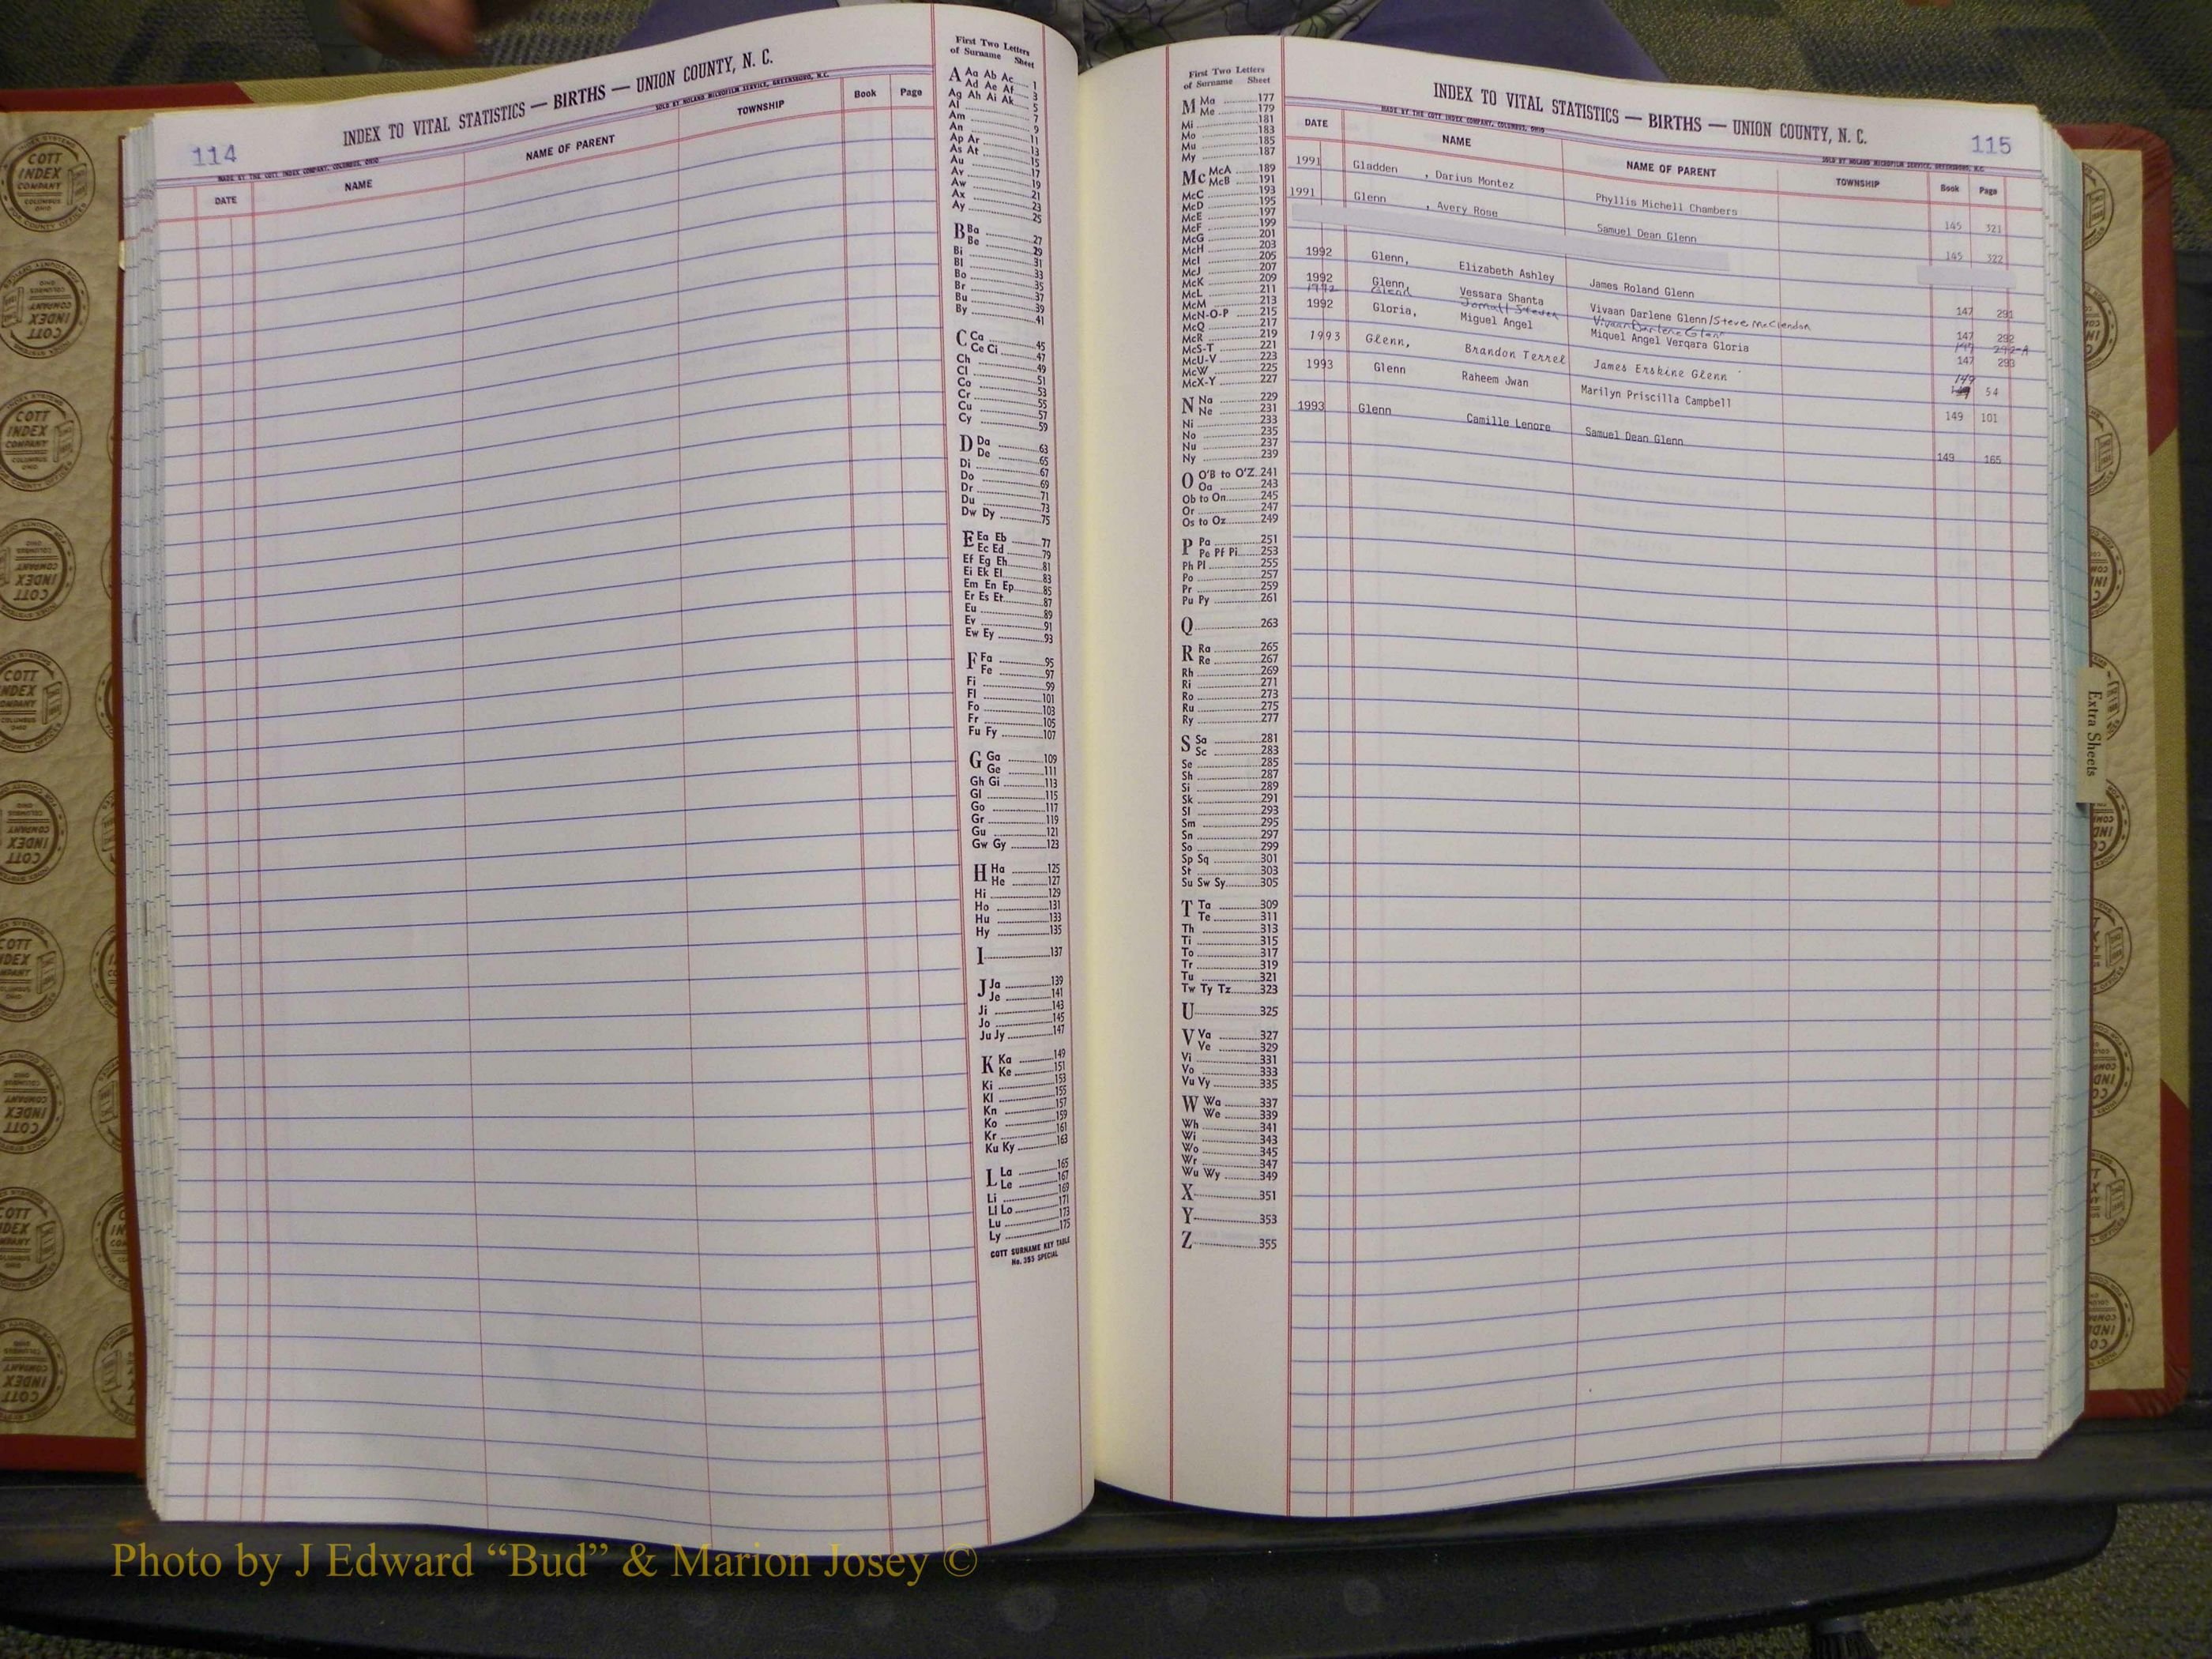 114
INDEX TO VITAL STATISTICS — BIRTHS — UNION COUNTY, N. C.
MADE BY THE COTT INDEX COMPANY, COLUMBUS, OHIO
SOLD BY NOLAND MICROFILM SERVICE, GREENSBORO, N.C.
DATE NAME NAME OF PARENT TOWNSHIP Book Page
First Two Letters
of Surname Sheet
A Aa Ab Ac 1
Ad Ae Af 3
Ag Ah Ai Ak 5
Al 7
Am 9
An 11
Ap Ar 13
As At 15
Au 17
Av 19
Aw 21
Ax 23
Ay 25
B Ba 27
Be 29
Bi 31
Bl 33
Bo 35
Br 37
Bu 39
By 41
C Ca 45
Ce Ci 47
Ch 49
Cl 51
Co 53
Cr 55
Cu 57
Cy 59
D Da 63
De 65
Di 67
Do 69
Dr 71
Du 73
Dw Dy 75
E Ea Eb 77
Ec Ed 79
Ef Eg Eh 81
Ei Ek El 83
Em En Ep 85
Er Es Et 87
Eu 89
Ev 91
Ew Ey 93
F Fa 95
Fe 97
Fi 99
Fl 101
Fo 103
Fr 105
Fu Fy 107
G Ga 109
Ge 111
Gh Gi 113
Gl 115
Go 117
Gr 119
Gu 121
Gw Gy 123
H Ha 125
He 127
Hi 129
Ho 131
Hu 133
Hy 135
I 137
J Ja 139
Je 141
Ji 143
Jo 145
Ju Jy 147
K Ka 149
Ke 151
Ki 153
Kl 155
Kn 157
Ko 159
Kr 161
Ku Ky 163
L La 165
Le 167
Li 169
Ll Lo 171
Lu 173
Ly 175
COTT SURNAME KEY TABLE
No. 355 SPECIAL
First Two Letters
of Surname Sheet
M Ma 177
Me 179
Mi 181
Mo 183
Mu 185
My 187
Mc McA 189
McB 191
McC 193
McD 195
McE 197
McF 199
McG 201
McH 203
McI 205
McJ 207
McK 209
McL 211
McM 213
McN-O-P 215
McQ 217
McR 219
McS-T 221
McU-V 223
McW 225
McX-Y 227
N Na 229
Ne 231
Ni 233
No 235
Nu 237
Ny 239
O O'B to O'Z 241
Oa 243
Ob to On 245
Or 247
Os to Oz 249
P Pa 251
Pe Pf Pi 253
Ph Pl 255
Po 257
Pr 259
Pu Py 261
Q 263
R Ra 265
Re 267
Rh 269
Ri 271
Ro 273
Ru 275
Ry 277
S Sa 281
Sc 283
Se 285
Sh 287
Si 289
Sk 291
Sl 293
Sm 295
Sn 297
So 299
Sp Sq 301
St 303
Su Sw Sy 305
T Ta 309
Te 311
Th 313
Ti 315
To 317
Tr 319
Tu 321
Tw Ty Tz 323
U 325
V Va 327
Ve 329
Vi 331
Vo 333
Vu Vy 335
W Wa 337
We 339
Wh 341
Wi 343
Wo 345
Wr 347
Wu Wy 349
X 351
Y 353
Z 355
INDEX TO VITAL STATISTICS — BIRTHS — UNION COUNTY, N. C.
115
MADE BY THE COTT INDEX COMPANY, COLUMBUS, OHIO
SOLD BY NOLAND MICROFILM SERVICE, GREENSBORO, N.C.
DATE NAME NAME OF PARENT TOWNSHIP Book Page
1991 Gladden , Darius Montez Phyllis Michell Chambers 145 321
1991 Glenn , Avery Rose Samuel Dean Glenn 145 322
1992 Glenn, Elizabeth Ashley James Roland Glenn 147 291
1992 Glenn, Vessara Shanta Vivaan Darlene Glenn/Steve McClendon 147 292
1992 Vivaan Darlene Glenn 147 292-A
1992 Gloria, Miguel Angel Miquel Angel Verqara Gloria 147 293
1993 Glenn, Brandon Terrel James Erskine Glenn 149 54
1993 Glenn Raheem Jwan Marilyn Priscilla Campbell 149 101
1993 Glenn Camille Lenore Samuel Dean Glenn 149 165
Extra Sheets
COTT
INDEX
COMPANY
COLUMBUS
OHIO
Photo by J Edward “Bud” & Marion Josey ©